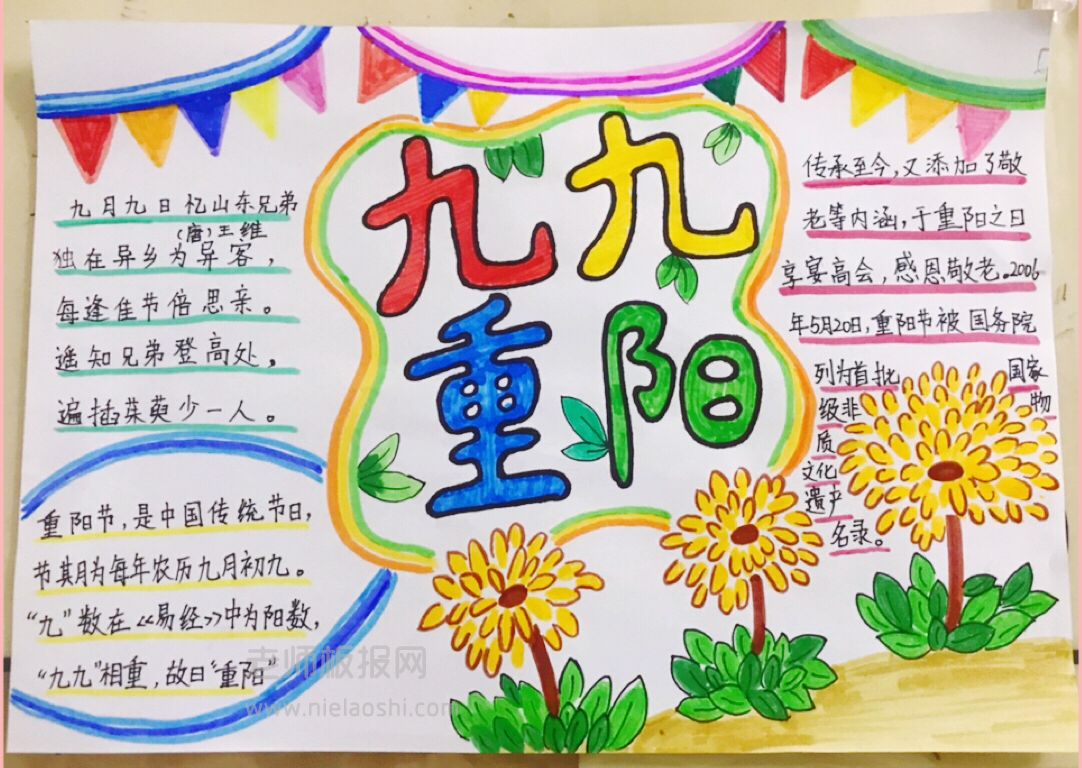 九九
重阳
九月九日忆山东兄弟
(唐)王维
独在异乡为异客，
每逢佳节倍思亲。
遥知兄弟登高处，
遍插茱萸少一人。
重阳节，是中国传统节日，
节其月为每年农历九月初九。
“九”数在《易经》中为阳数，
“九九”相重，故曰“重阳”
传承至今，又添加了敬
老等内涵，于重阳之日
享宴高会，感恩敬老。2006
年5月20日，重阳节被国务院
列为首批 国家
级非 物
质
文化
遗产
名录。
老师板报网
www.nielaoshi.com